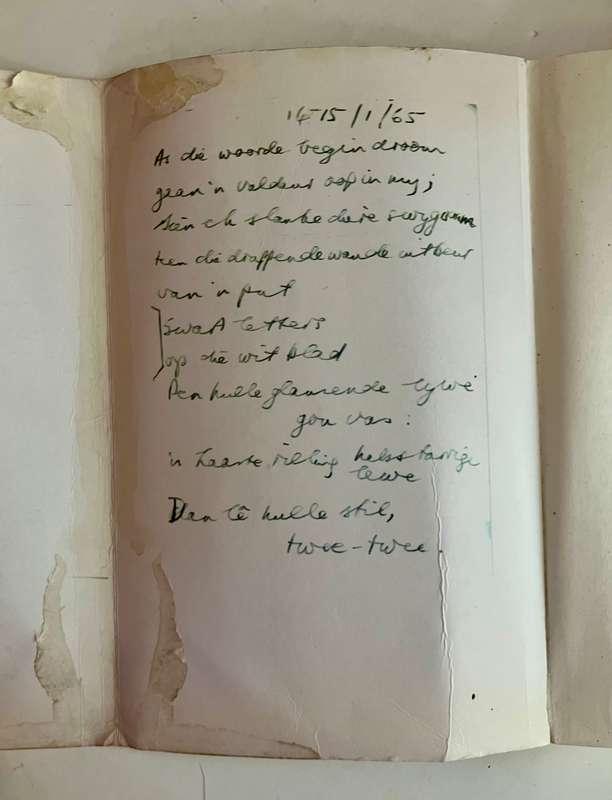 14-15/1/65
As die woorde begin droom
gaan 'n valdeur oop in my;
sien ek slanke diere
teen die wande uitbeur
van 'n put
swart letters
op die wit blad
Pen hulle glansende lywe
gou vas:
'n laaste rilling
lewe
Dan lê hulle stil,
twee-twee.